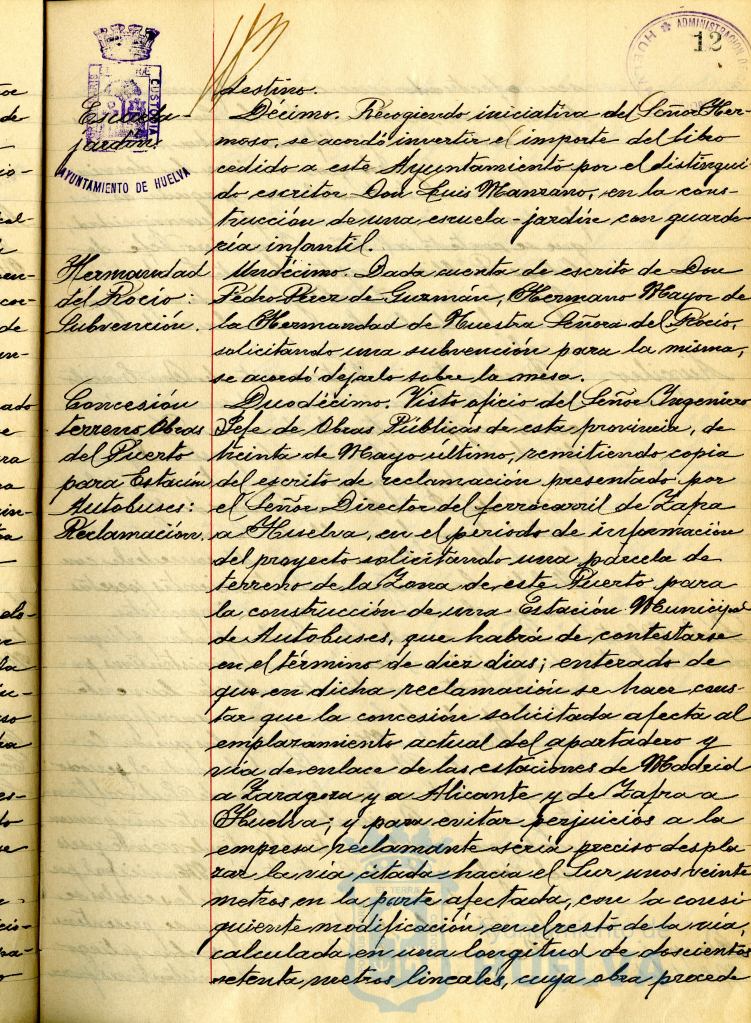 ADMINISTRACION
HUELVA
12
PORTUS
ET TERRÆ
CUSTODIA
AYUNTAMIENTO DE HUELVA
destino.
Escuela-
jardín
Décimo. Recogiendo iniciativa del Señor Her-
moso, se acordó invertir el importe del libro
cedido a este Ayuntamiento por el distingui-
do escritor Don Luis Manzano, en la cons-
trucción de una escuela-jardín con guarde-
ría infantil.
Hermandad
del Rocío:
Subvención.
Undécimo. Dada cuenta de escrito de Don
Pedro Pérez de Guzmán, Hermano Mayor de
la Hermandad de Nuestra Señora del Rocío,
solicitando una subvención para la misma,
se acordó dejarlo sobre la mesa.
Concesión
terreno Obras
del Puerto
para Estación
Autobuses:
Reclamación.
Duodécimo. Visto oficio del Señor Ingeniero
Jefe de Obras Públicas de esta provincia, de
treinta de Mayo último, remitiendo copia
del escrito de reclamación presentado por
el Señor Director del ferrocarril de Zafra
a Huelva, en el periodo de información
del proyecto solicitando una parcela de
terreno de la Zona de este Puerto para
la construcción de una Estación Municipal
de Autobuses, que habrá de contestarse
en el término de diez dias; enterado de
que en dicha reclamación se hace cons-
tar que la concesión solicitada afecta al
emplazamiento actual del apartadero y
vía de enlace de las estaciones de Madrid
a Zaragoza y a Alicante y de Zafra a
Huelva; y para evitar perjuicios a la
empresa reclamante sería preciso despla-
zar la vía citada hacia el Sur unos veinte
metros en la parte afectada, con la consi
guiente modificación en el resto de la vía,
calculada en una longitud de doscientos
setenta metros lineales, cuya obra procede